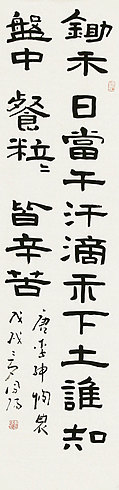 鋤禾日當午汗滴禾下土誰知
盤中餐粒〻皆辛苦
唐李紳憫農
戊戌